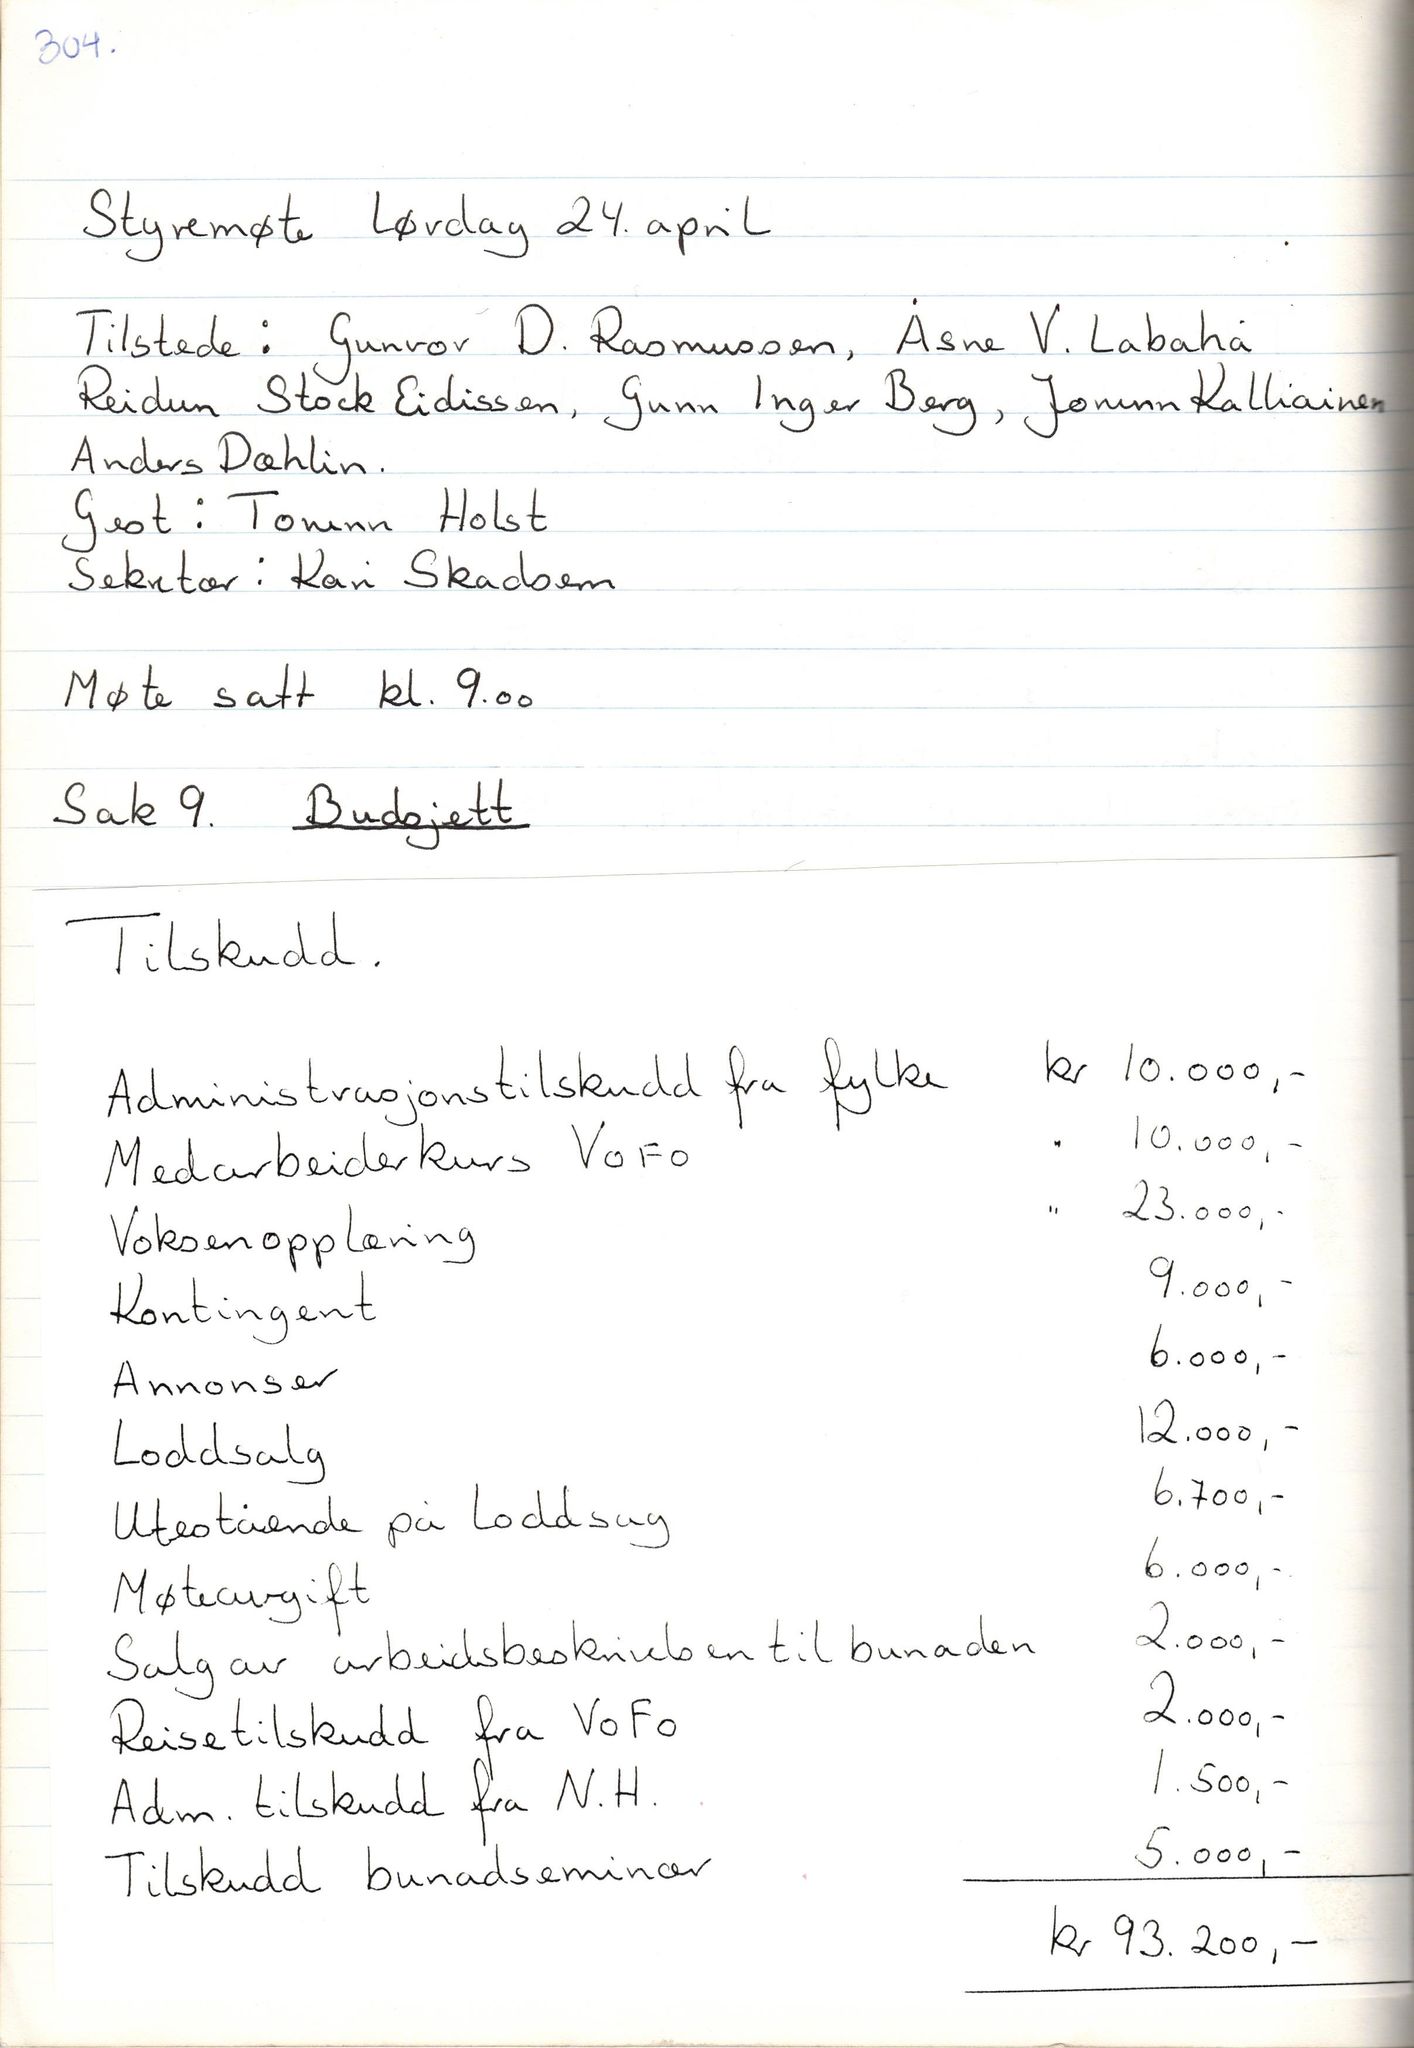 304.
Styremøte Lørdag 24. april
Tilstede: Gunvor D. Rasmussen, Åsne V. Labahå
Reidun Stock Eidissen, Gunn Inger Berg, Jorunn Kalliainen
Anders Dæhlin.
Gest: Torunn Holst
Sekretær: Kari Skadsem
Møte satt kl. 9.00
Sak 9. Budsjett
Tilskudd.
Administrasjonstilskudd fra fylke kr 10.000,-
Medarbeiderkurs VoFo " 10.000,-
Voksenopplæring " 23.000,-
Kontingent 9.000,-
Annonser 6.000,-
Loddsalg 12.000,-
Utestående på Loddsag 6.700,-
Møteavgift 6.000,-
Salg av arbeidsbeskrivelsen til bunaden 2.000,-
Reisetilskudd fra VoFo 2.000,-
Adm. tilskudd fra N.H. 1.500,-
Tilskudd bunadseminar 5.000,-
kr 93.200,-